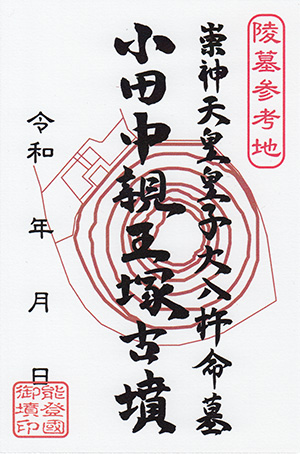 陵墓参考地
崇神天皇皇子大入杵命墓
小田中親王塚古墳
令和 年 月 日
能登國
御墳印